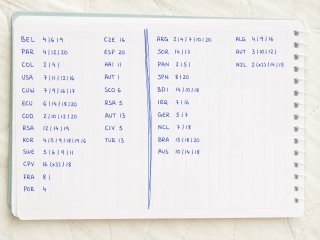 BEL 4 | 6 | 9
PAR 4 | 12 | 20
COL 2 | 9 |
USA 7 | 11 | 12 | 16
CUW 7 | 9 | 16 | 17
ECU 6 | 14 | 18 | 20
COD 2 | 10 | 12 | 20
RSA 12 | 14 | 19
KOR 4 | 5 | 9 | 15 | 19 | 16
SWE 5 | 6 | 9 | 11
CPV 16 (x3) | 18
FRA 8 |
POR 4
CZE 16
ESP 20
HAI 11
AUT 1
SCO 6
RSA 5
AUT 13
CIV 5
TUR 13
ARG 2 | 4 | 7 | 10 | 20
JOR 14 | 17
PAN 2 | 5 |
JPN 8 | 20
BDI 14 | 10 | 18
IRQ 7 | 16
GER 5 | 7
NCL 7 | 18
BRA 15 | 18 | 20
AUS 10 | 14 | 18
ALG 4 | 9 | 16
AUT 3 | 10 | 12 |
NZL 2 (x2) | 14 | 15